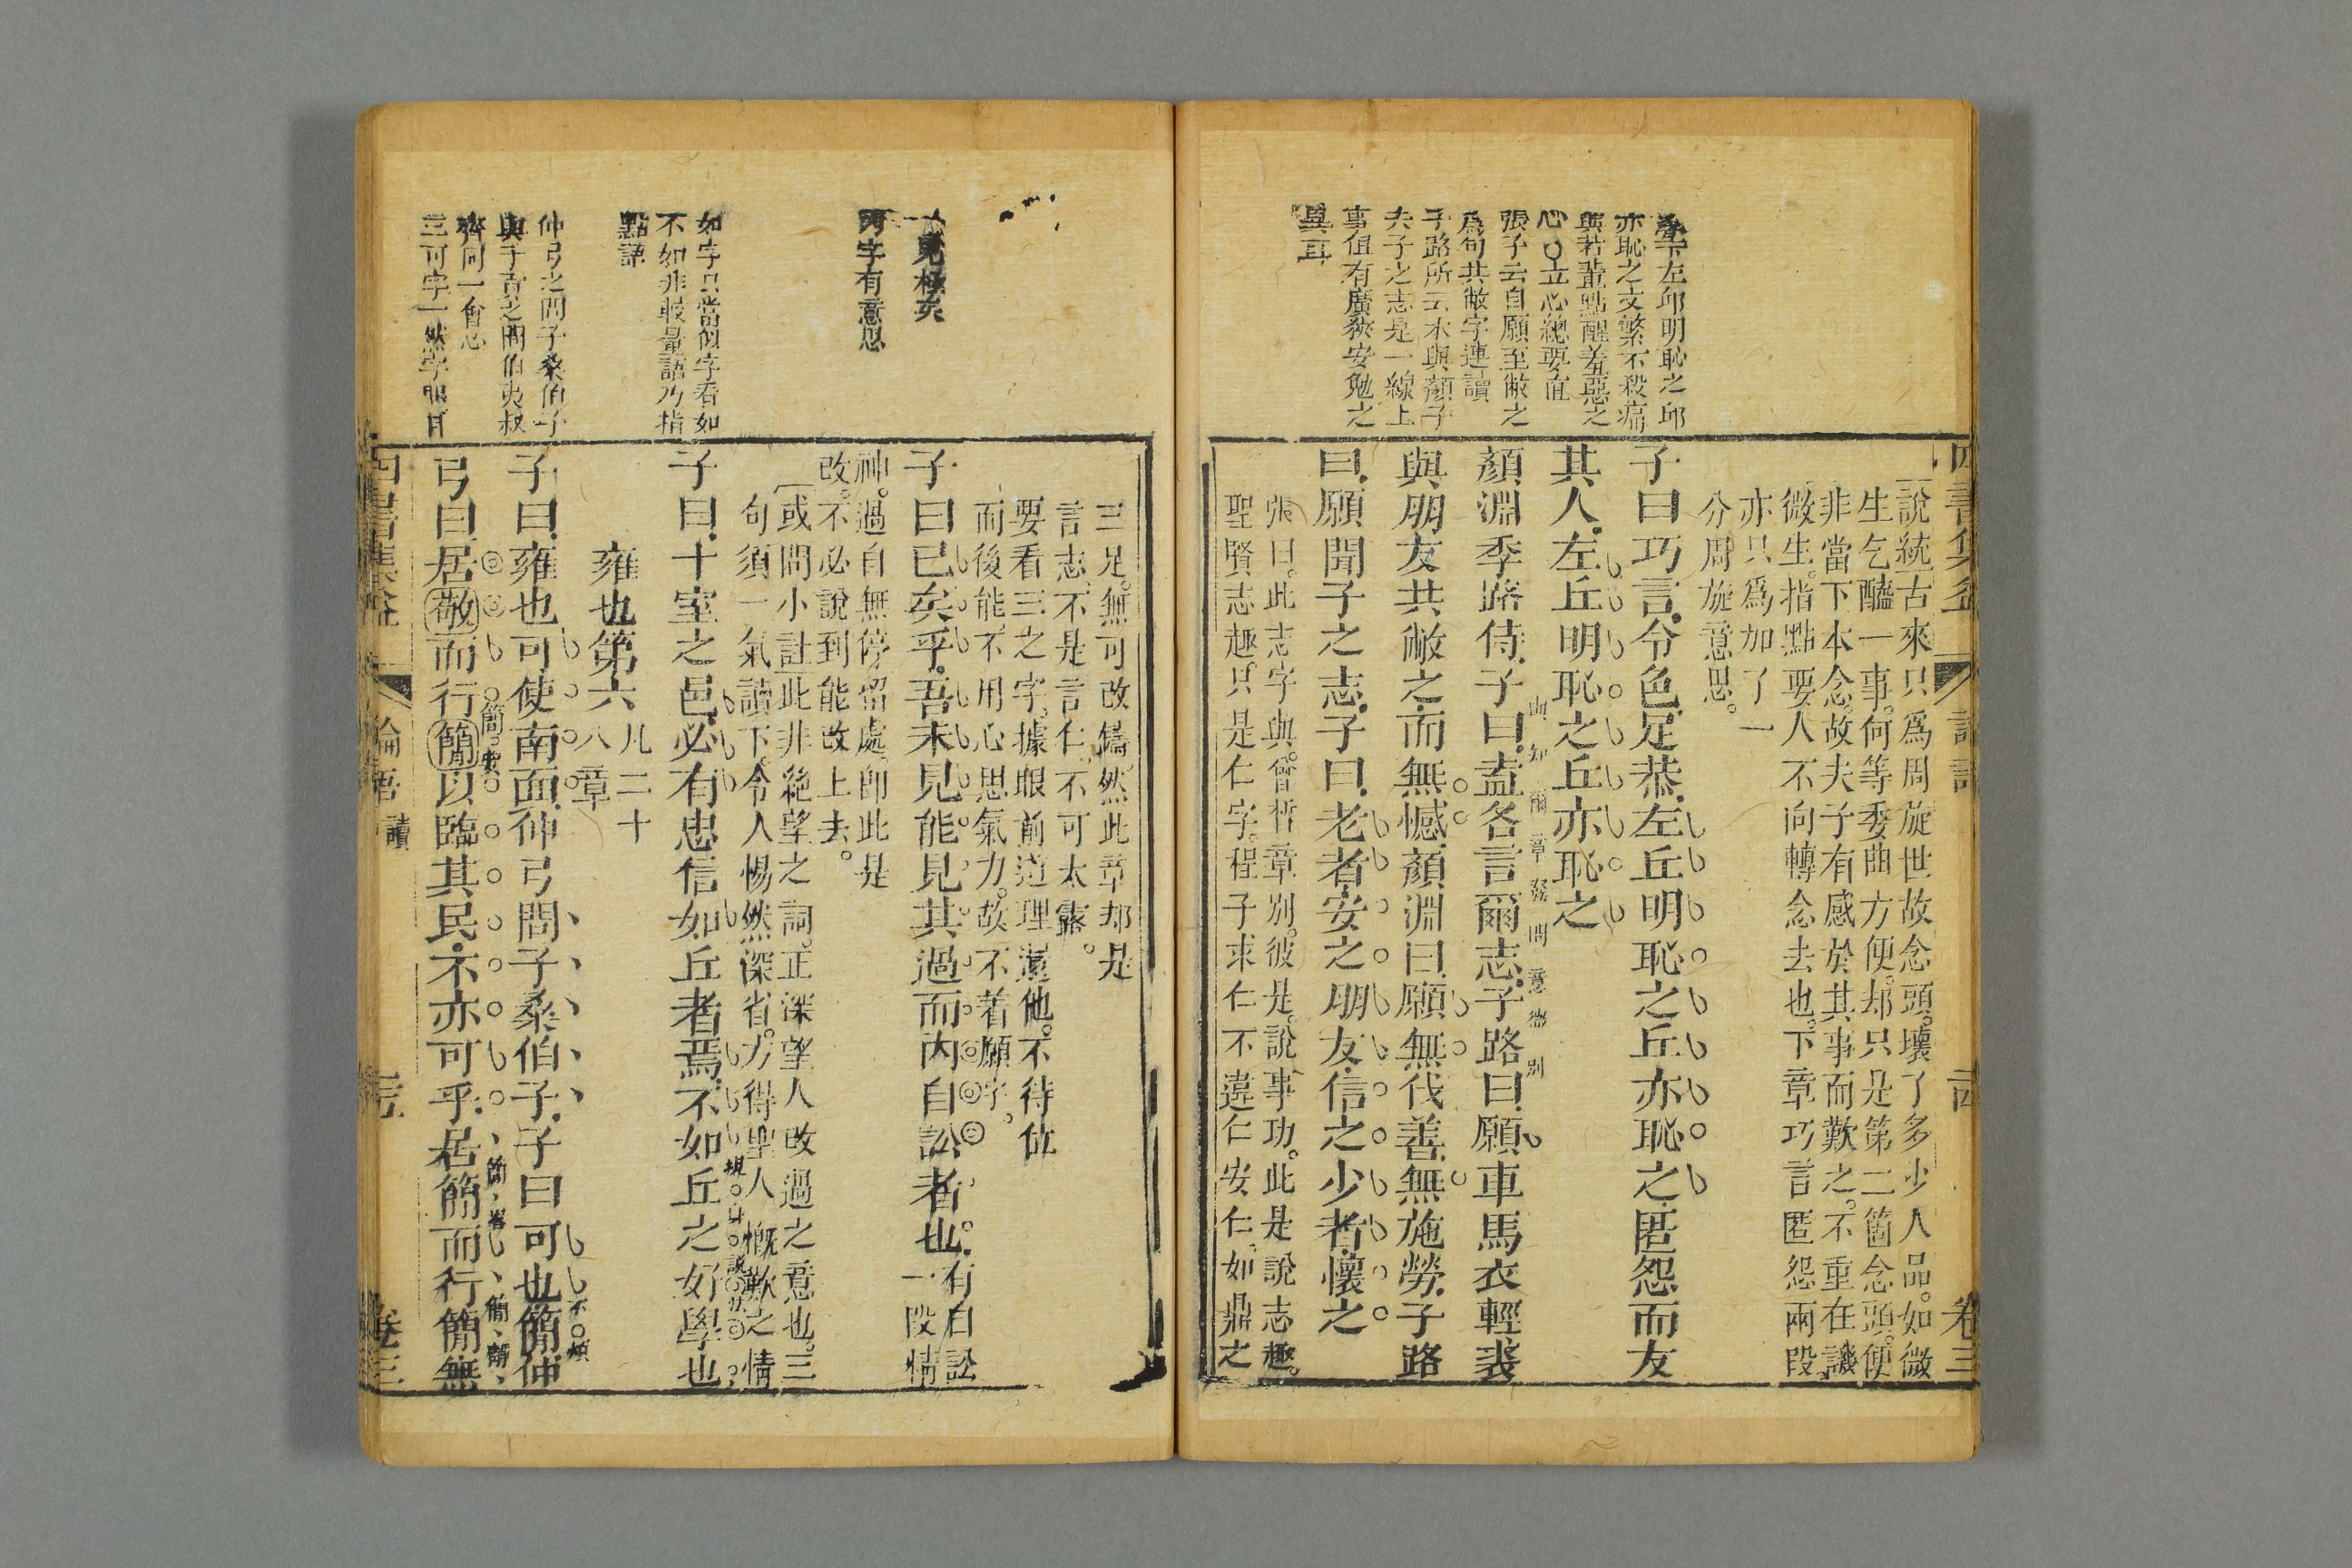 疊下左邱明恥之邱
亦恥之文繁不殺痛
與若輩點醒羞惡之
心○立心總要直
張子云自願至敝之
爲句共敝字連讀
子路所云本與顏子
夫子之志是一線上
事但有廣狹安勉之
異耳
四書集益
論語
卷三
說統古來只爲周旋世故念頭。壞了多少人品。如微
生乞醯一事。何等委曲方便。却只是第二箇念頭。便
非當下本念。故夫子有感於其事而歎之。不重在譏
微生。指點要人不向轉念去也。下章巧言匿怨兩段
亦只爲加了一
分周旋意思。
子曰巧言令色足恭左丘明恥之丘亦恥之匿怨而友
其人左丘明恥之丘亦恥之
顏淵季路侍子曰盍各言爾志子路曰願車馬衣輕裘
與知爾章發問意微別
與朋友共敝之而無憾顏淵曰願無伐善無施勞子路
曰願聞子之志子曰老者安之朋友信之少者懷之
張曰。此志字與。曾晳章別。彼是。說事功。此是說志趣。
聖賢志趣。只是仁字。程子求仁不違仁安仁。如鼎之
見極矣
內字有意思
如字只當似字看如
不如非較量語乃指
點語
仲弓之問子桑伯子
與子貢之問伯夷叔
齊同一會心
三可字一然字眼目
三足。無可改鑄。然此章却是
言志。不是言仁。不可太露。
要看三之字。據眼前道理還他。不待位
而後能。不用心思氣力。故不着願字。
子曰已矣乎吾未見能見其過而內自訟者也
有自訟
一段情
神。過自無停留處。卽此是
改。不必說到能改上去。
或問小註此非絕望之詞。正深望人改過之意也。三
句須一氣讀下。令人惕然深省。方得聖人慨歎之情
子曰十室之邑必有忠信如丘者焉不如丘之好學也
雍也第六
凡二十
八章
子曰雍也可使南面仲弓問子桑伯子子曰可也簡仲
不煩
簡要
弓曰居敬而行簡以臨其民不亦可乎居簡而行簡無
四書集益
論語
讀
卷三